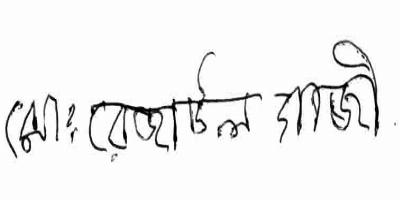 মোঃ রেজাউল গাজী